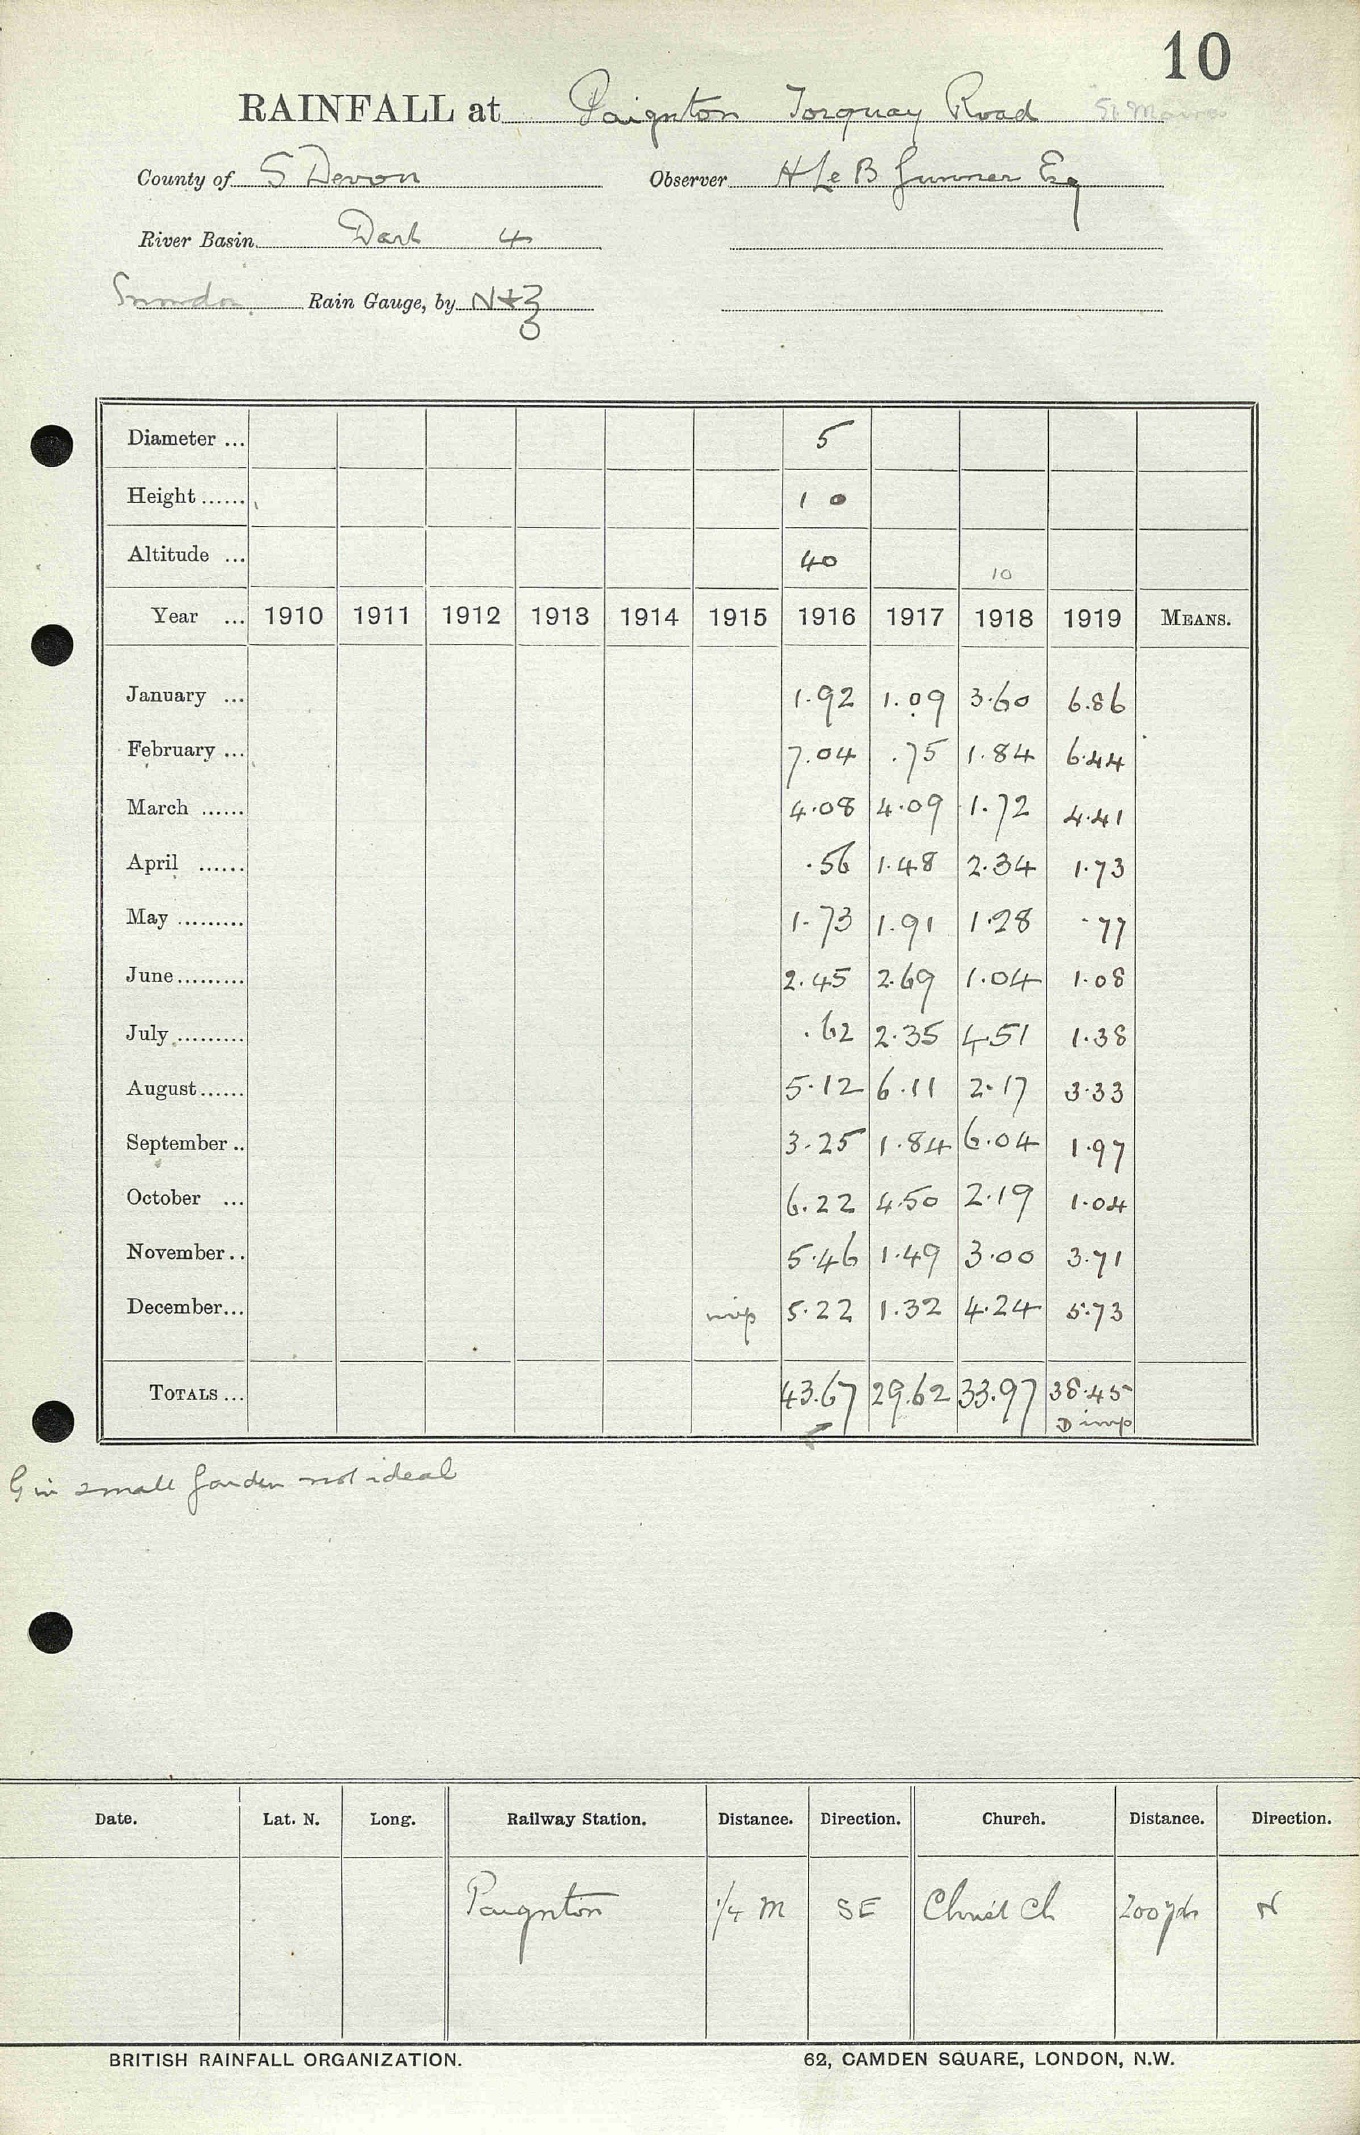 10
RAINFALL at Paignton Torquay Road
County of S Devon Observer H Le B Gunner Esq
River Basin Dart 4
Snowdon Rain Gauge, by N+Z
Diameter ... 5
Height ...... 1 0
Altitude ... 40 10
Year ... 1910 1911 1912 1913 1914 1915 1916 1917 1918 1919 MEANS.
January ... 1.92 1.09 3.60 6.86
February ... 7.04 .75 1.84 6.44
March ...... 4.08 4.09 1.72 4.41
April ...... .56 1.48 2.34 1.73
May ......... 1.73 1.91 1.28 .77
June ......... 2.45 2.69 1.04 1.08
July ......... .62 2.35 4.51 1.38
August ...... 5.12 6.11 2.17 3.33
September .. 3.25 1.84 6.04 1.97
October ... 6.22 4.50 2.19 1.04
November .. 5.46 1.49 3.00 3.71
December ... imp 5.22 1.32 4.24 5.73
TOTALS ... 43.67 29.62 33.97 38.45
D imp
G in small garden not ideal
Date. Lat. N. Long. Railway Station. Distance. Direction. Church. Distance. Direction.
Paignton 1/4 M SE Christ Ch 200 yds N
BRITISH RAINFALL ORGANIZATION. 62, CAMDEN SQUARE, LONDON, N.W.